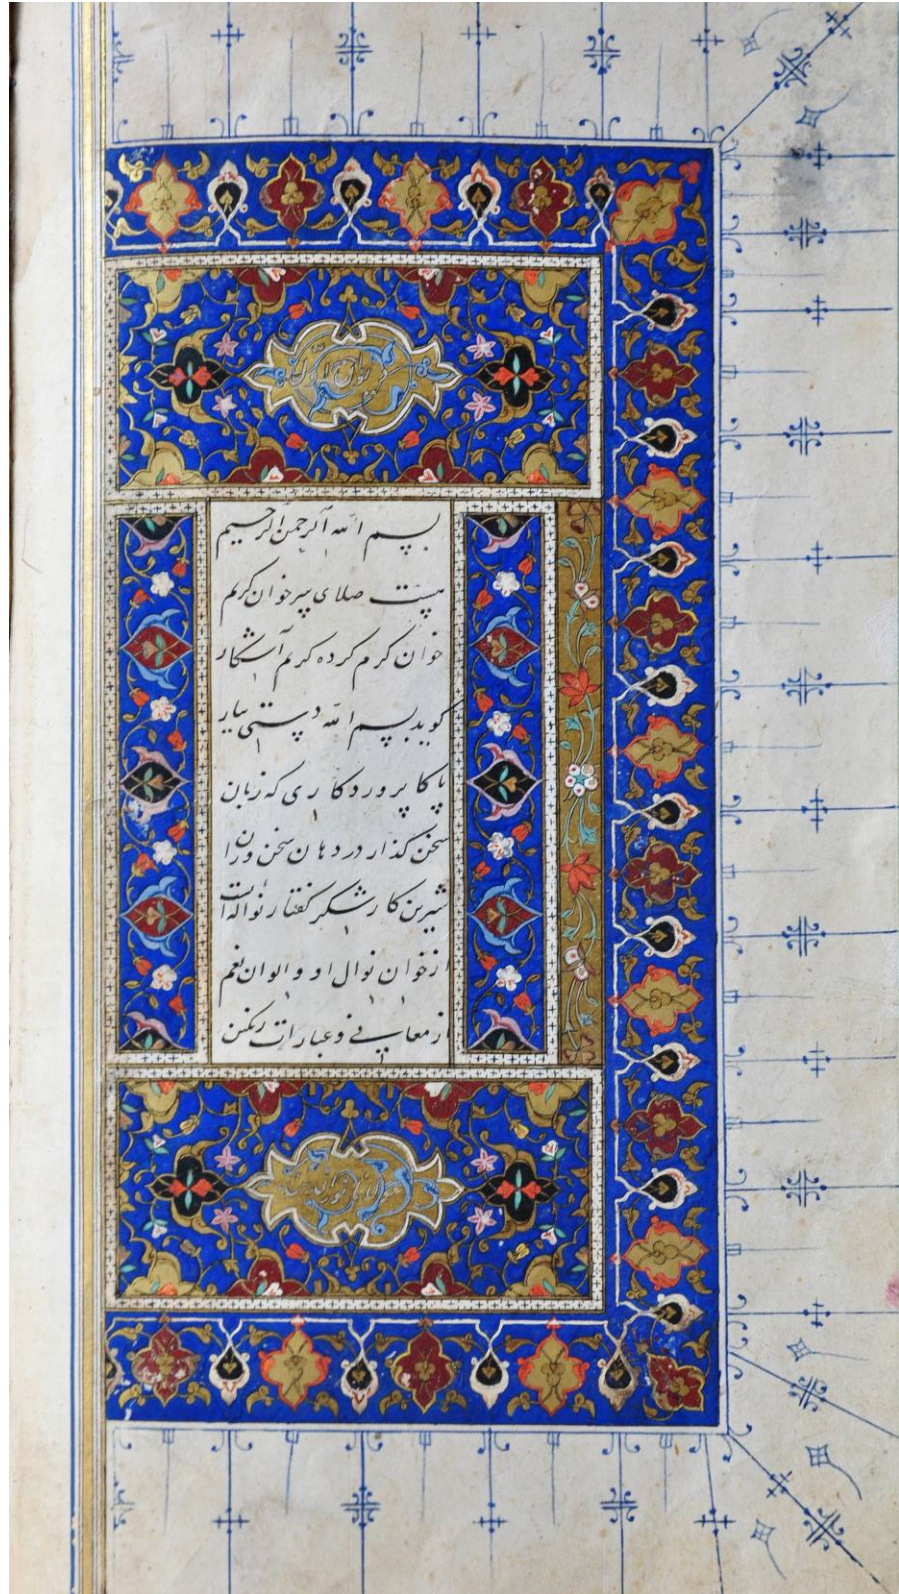 بسم الله الرحمن الرحیم
هست صلای سر خوان کریم
خوان کرم کرده کریم آشکار
کوید بسم الله دستی بیار
پاکا پروردکاری که زبان
سخن کذار در دهان سخن وران
شیرین کار شکر کفتار نواله است
از خوان نوال او و الوان نعم
از معانی و عبارات رنکین